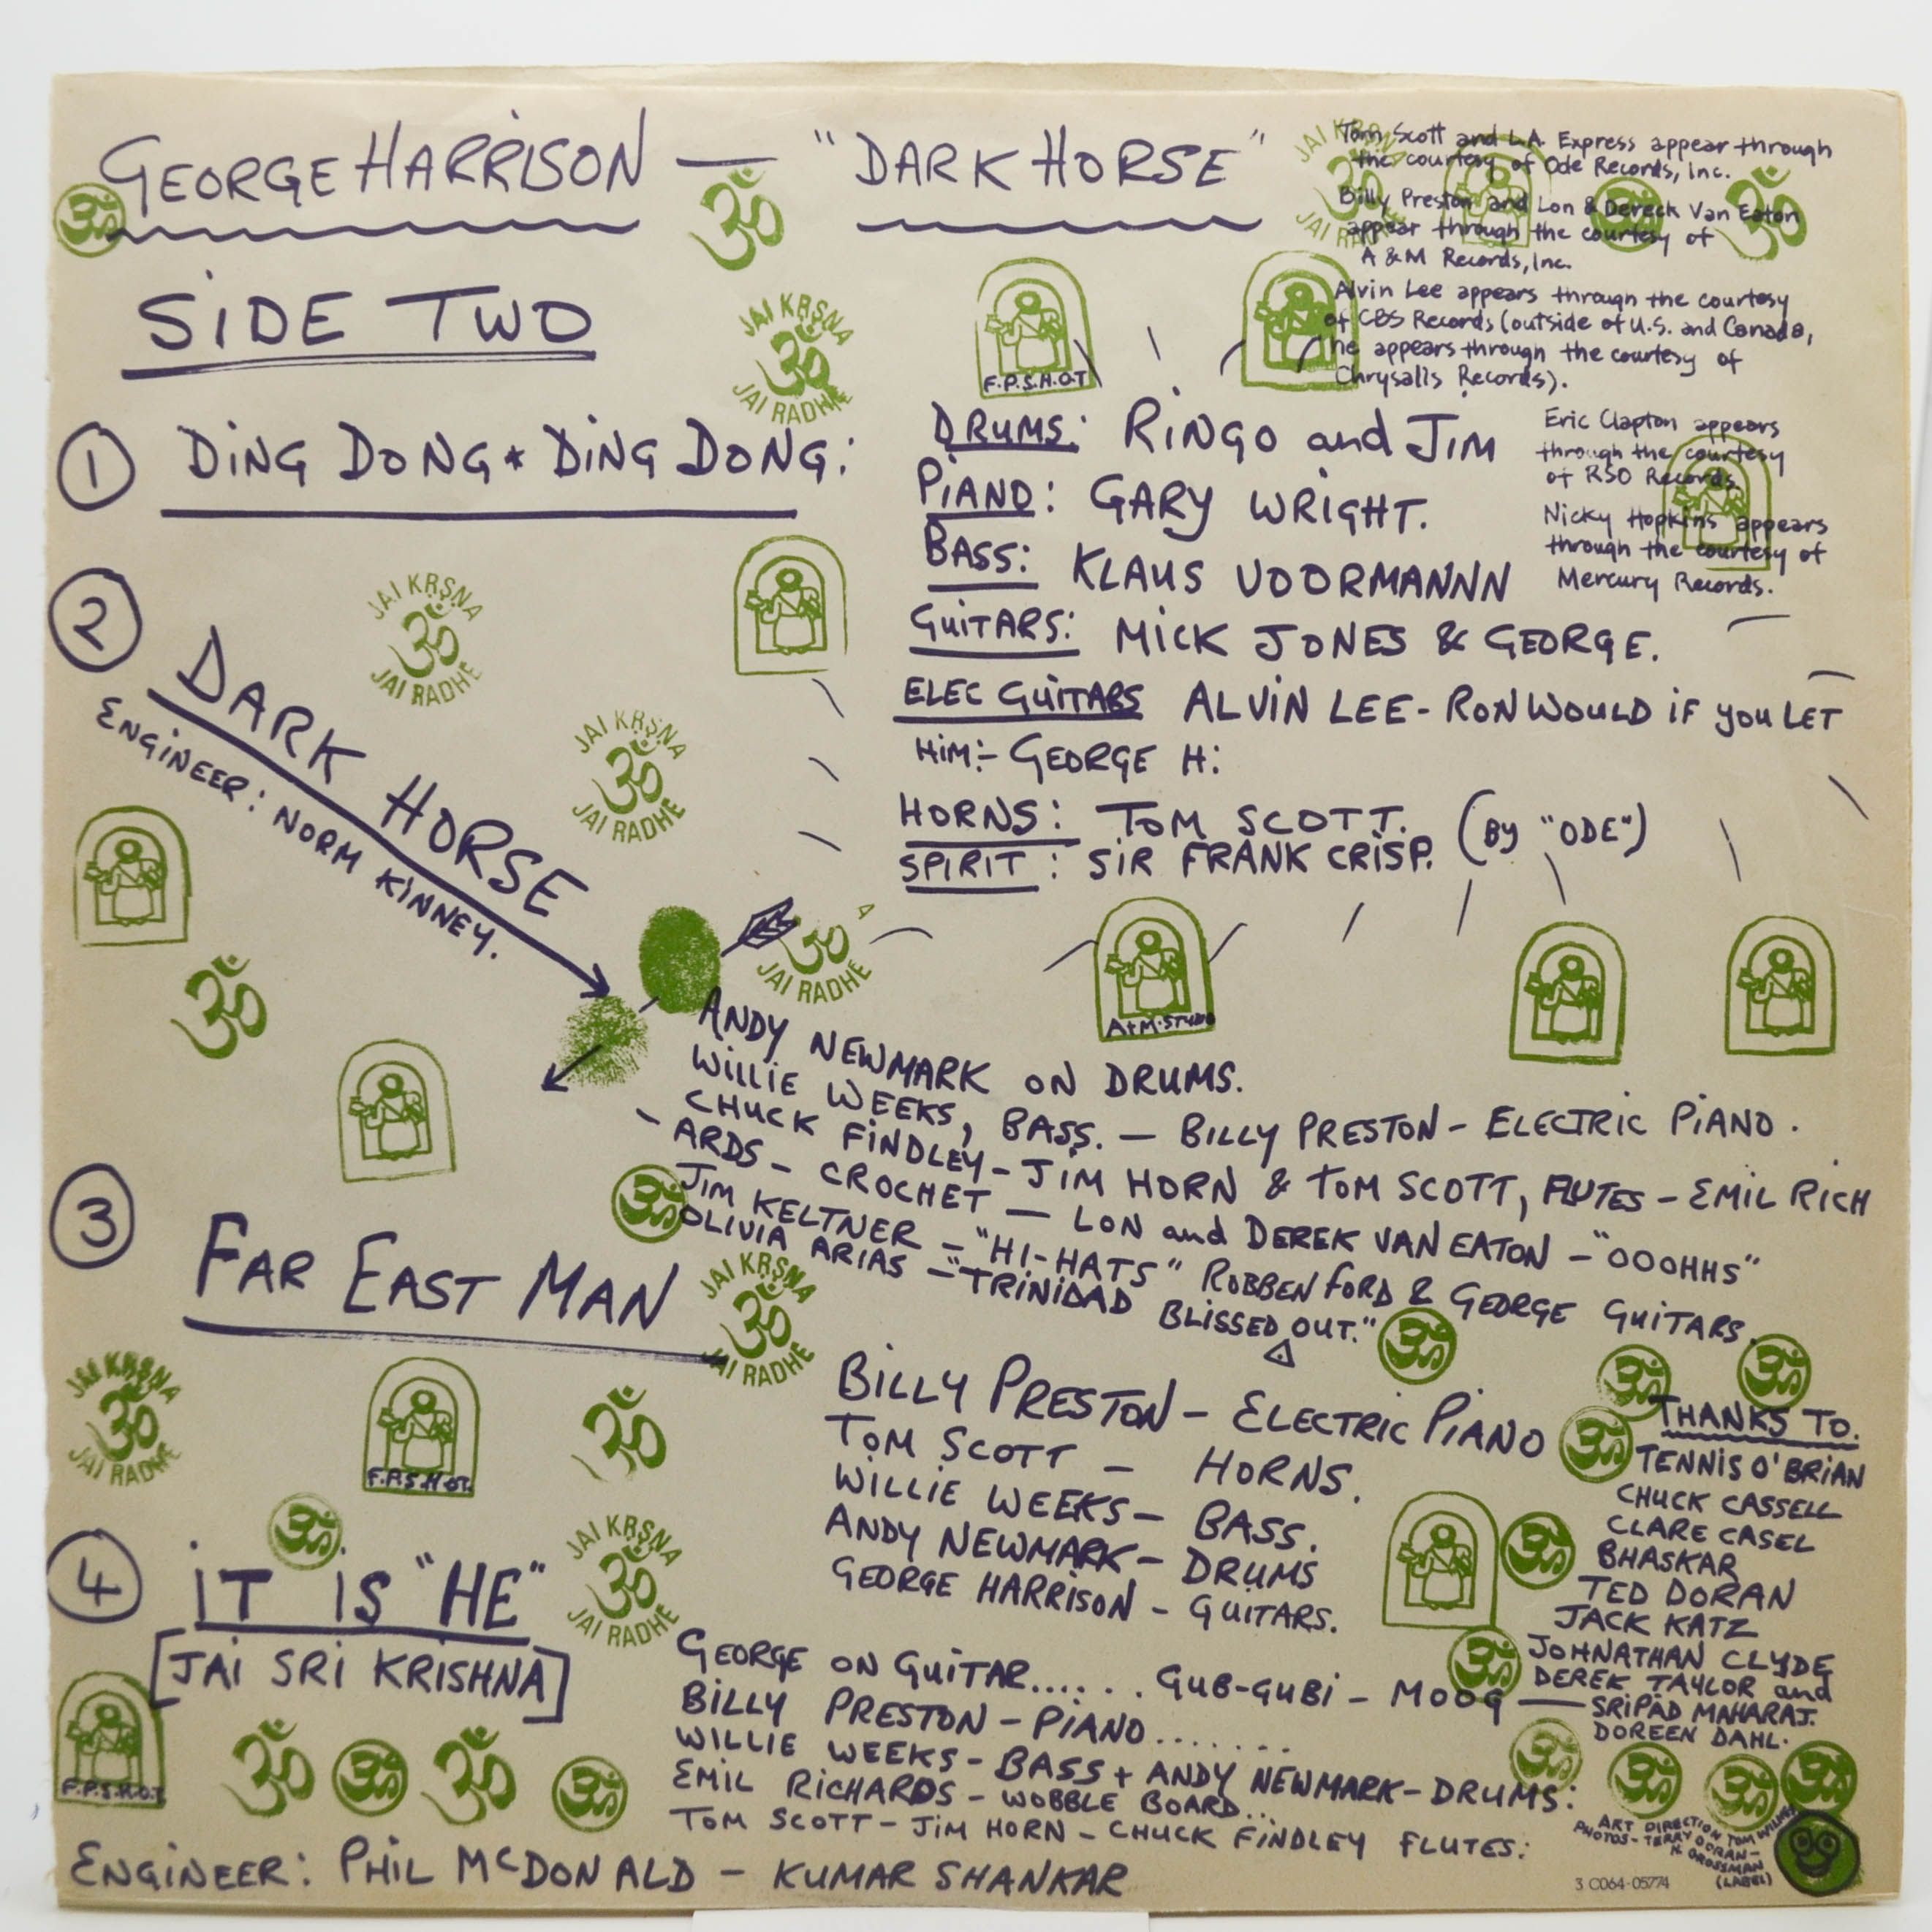 GEORGE HARRISON — "DARK HORSE"
SIDE TWO
Tom Scott and L.A. Express appear through
the courtesy of Ode Records, Inc.
Billy Preston and Lon & Dereck Van Eaton
appear through the courtesy of
A & M Records, Inc.
Alvin Lee appears through the courtesy
of CBS Records (outside of U.S. and Canada,
he appears through the courtesy of
Chrysalis Records).
Eric Clapton appears
through the courtesy
of RSO Records.
Nicky Hopkins appears
through the courtesy of
Mercury Records.
ॐ
JAI KRṢṆA
ॐ
JAI RADHE
F.P.S.H.O.T
① DING DONG * DING DONG:
DRUMS: RINGO and JIM
PIANO: GARY WRIGHT.
BASS: KLAUS VOORMANNN
GUITARS: MICK JONES & GEORGE.
ELEC GUITARS ALVIN LEE - RON WOULD IF YOU LET
HIM:- GEORGE H:
HORNS: TOM SCOTT. (BY "ODE")
SPIRIT: SIR FRANK CRISP.
② DARK HORSE
ENGINEER: NORM KINNEY.
A+M. STUDO
ANDY NEWMARK ON DRUMS.
WILLIE WEEKS, BASS. — BILLY PRESTON - ELECTRIC PIANO.
CHUCK FINDLEY - JIM HORN & TOM SCOTT, FLUTES - EMIL RICH
- ARDS - CROCHET — LON and DEREK VAN EATON - "OOOHHS"
JIM KELTNER - "HI-HATS" ROBBEN FORD & GEORGE GUITARS.
OLIVIA ARIAS - "TRINIDAD BLISSED OUT."
③ FAR EAST MAN
BILLY PRESTON - ELECTRIC PIANO
TOM SCOTT — HORNS.
WILLIE WEEKS — BASS.
ANDY NEWMARK — DRUMS
GEORGE HARRISON - GUITARS.
F.P.S.H.O.T.
THANKS TO.
TENNIS O'BRIAN
CHUCK CASSELL
CLARE CASEL
BHASKAR
TED DORAN
JACK KATZ
JOHNATHAN CLYDE
DEREK TAYLOR and
SRIPAD MAHARAJ.
DOREEN DAHL.
④ IT IS "HE"
[JAI SRI KRISHNA]
GEORGE ON GUITAR...... GUB-GUBI - MOOG —
BILLY PRESTON - PIANO........
WILLIE WEEKS - BASS + ANDY NEWMARK - DRUMS:
EMIL RICHARDS - WOBBLE BOARD...
TOM SCOTT - JIM HORN - CHUCK FINDLEY FLUTES:
F.P.S.H.O.T
ENGINEER: PHIL McDONALD - KUMAR SHANKAR
ART DIRECTION TOM WILKES
PHOTOS - TERRY DORAN -
K GROSSMAN
(LABEL)
3 C064-05774